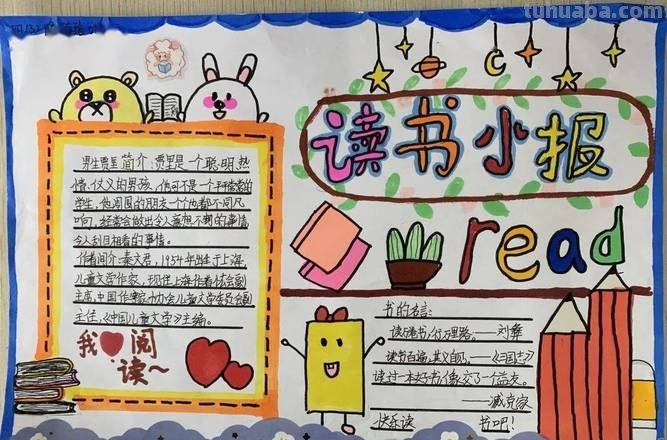 tuhuaba.com
读书小报
read
男生贾里简介:贾里是一个聪明、热
情、仗义的男孩,他可不是一个平平常常的
学生,他周围的朋友一个个也都不同凡
响,经常会做出令人意想不到的事情,
令人刮目相看的事情。
作者简介:秦文君,1954年出生于上海
儿童文学作家,现任上海作者协会副
主席,中国作家协会儿童文学委员会副
主任,《中国儿童文学》主编。
我 阅
读~
书的名言:
读万卷书,行万里路。——刘彝
读书百遍,其义自见。——《三国志》
读过一本好书,像交了一个益友。
——臧克家
快乐读 书吧!